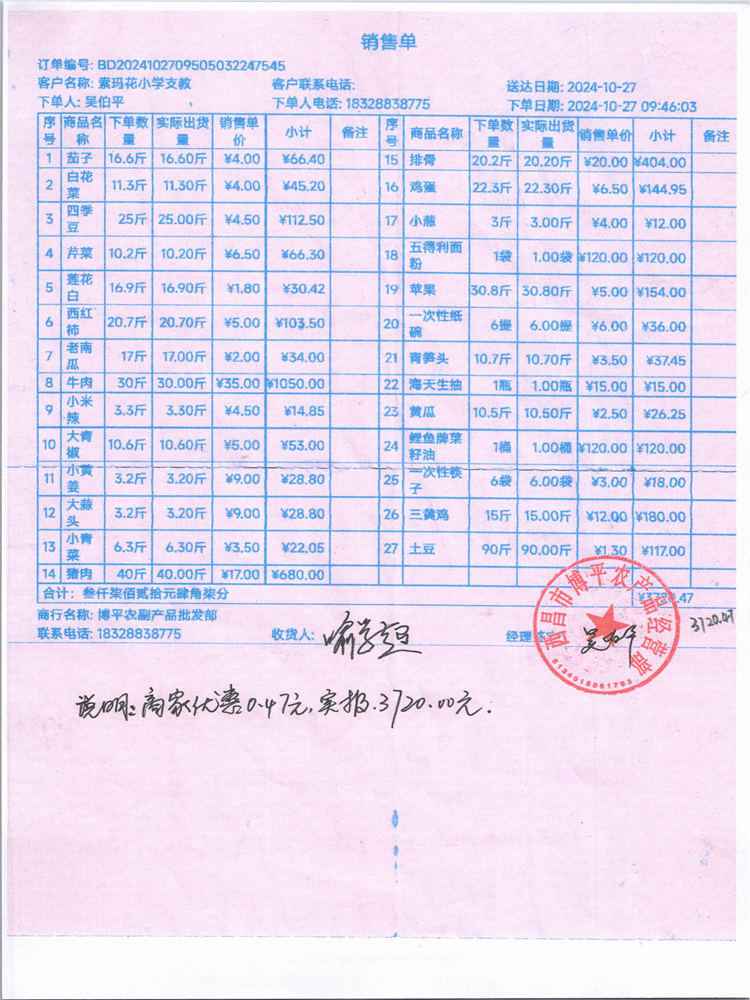 销售单
订单编号: BD2024102709505032247545
客户名称: 索玛花小学支教 客户联系电话: 送达日期: 2024-10-27
下单人: 吴伯平 下单人电话: 18328838775 下单日期: 2024-10-27 09:46:03
序号 商品名称 下单数量 实际出货量 销售单价 小计 备注 序号 商品名称 下单数量 实际出货量 销售单价 小计 备注
1 茄子 16.6斤 16.60斤 ¥4.00 ¥66.40 15 排骨 20.2斤 20.20斤 ¥20.00 ¥404.00
2 白花菜 11.3斤 11.30斤 ¥4.00 ¥45.20 16 鸡蛋 22.3斤 22.30斤 ¥6.50 ¥144.95
3 四季豆 25斤 25.00斤 ¥4.50 ¥112.50 17 小葱 3斤 3.00斤 ¥4.00 ¥12.00
4 芹菜 10.2斤 10.20斤 ¥6.50 ¥66.30 18 五得利面粉 1袋 1.00袋 ¥120.00 ¥120.00
5 莲花白 16.9斤 16.90斤 ¥1.80 ¥30.42 19 苹果 30.8斤 30.80斤 ¥5.00 ¥154.00
6 西红柿 20.7斤 20.70斤 ¥5.00 ¥103.50 20 一次性纸碗 6提 6.00提 ¥6.00 ¥36.00
7 老南瓜 17斤 17.00斤 ¥2.00 ¥34.00 21 青笋头 10.7斤 10.70斤 ¥3.50 ¥37.45
8 牛肉 30斤 30.00斤 ¥35.00 ¥1050.00 22 海天生抽 1瓶 1.00瓶 ¥15.00 ¥15.00
9 小米辣 3.3斤 3.30斤 ¥4.50 ¥14.85 23 黄瓜 10.5斤 10.50斤 ¥2.50 ¥26.25
10 大青椒 10.6斤 10.60斤 ¥5.00 ¥53.00 24 鲤鱼牌菜籽油 1桶 1.00桶 ¥120.00 ¥120.00
11 小黄姜 3.2斤 3.20斤 ¥9.00 ¥28.80 25 一次性筷子 6袋 6.00袋 ¥3.00 ¥18.00
12 大蒜头 3.2斤 3.20斤 ¥9.00 ¥28.80 26 三黄鸡 15斤 15.00斤 ¥12.00 ¥180.00
13 小青菜 6.3斤 6.30斤 ¥3.50 ¥22.05 27 土豆 90斤 90.00斤 ¥1.30 ¥117.00
14 猪肉 40斤 40.00斤 ¥17.00 ¥680.00
合计: 叁仟柒佰贰拾元肆角柒分
商行名称: 博平农副产品批发部
联系电话: 18328838775 收货人: 经理签
3720.47
西昌市博平农产品经营部
说明: 商家优惠0.47元,实报3720.00元.